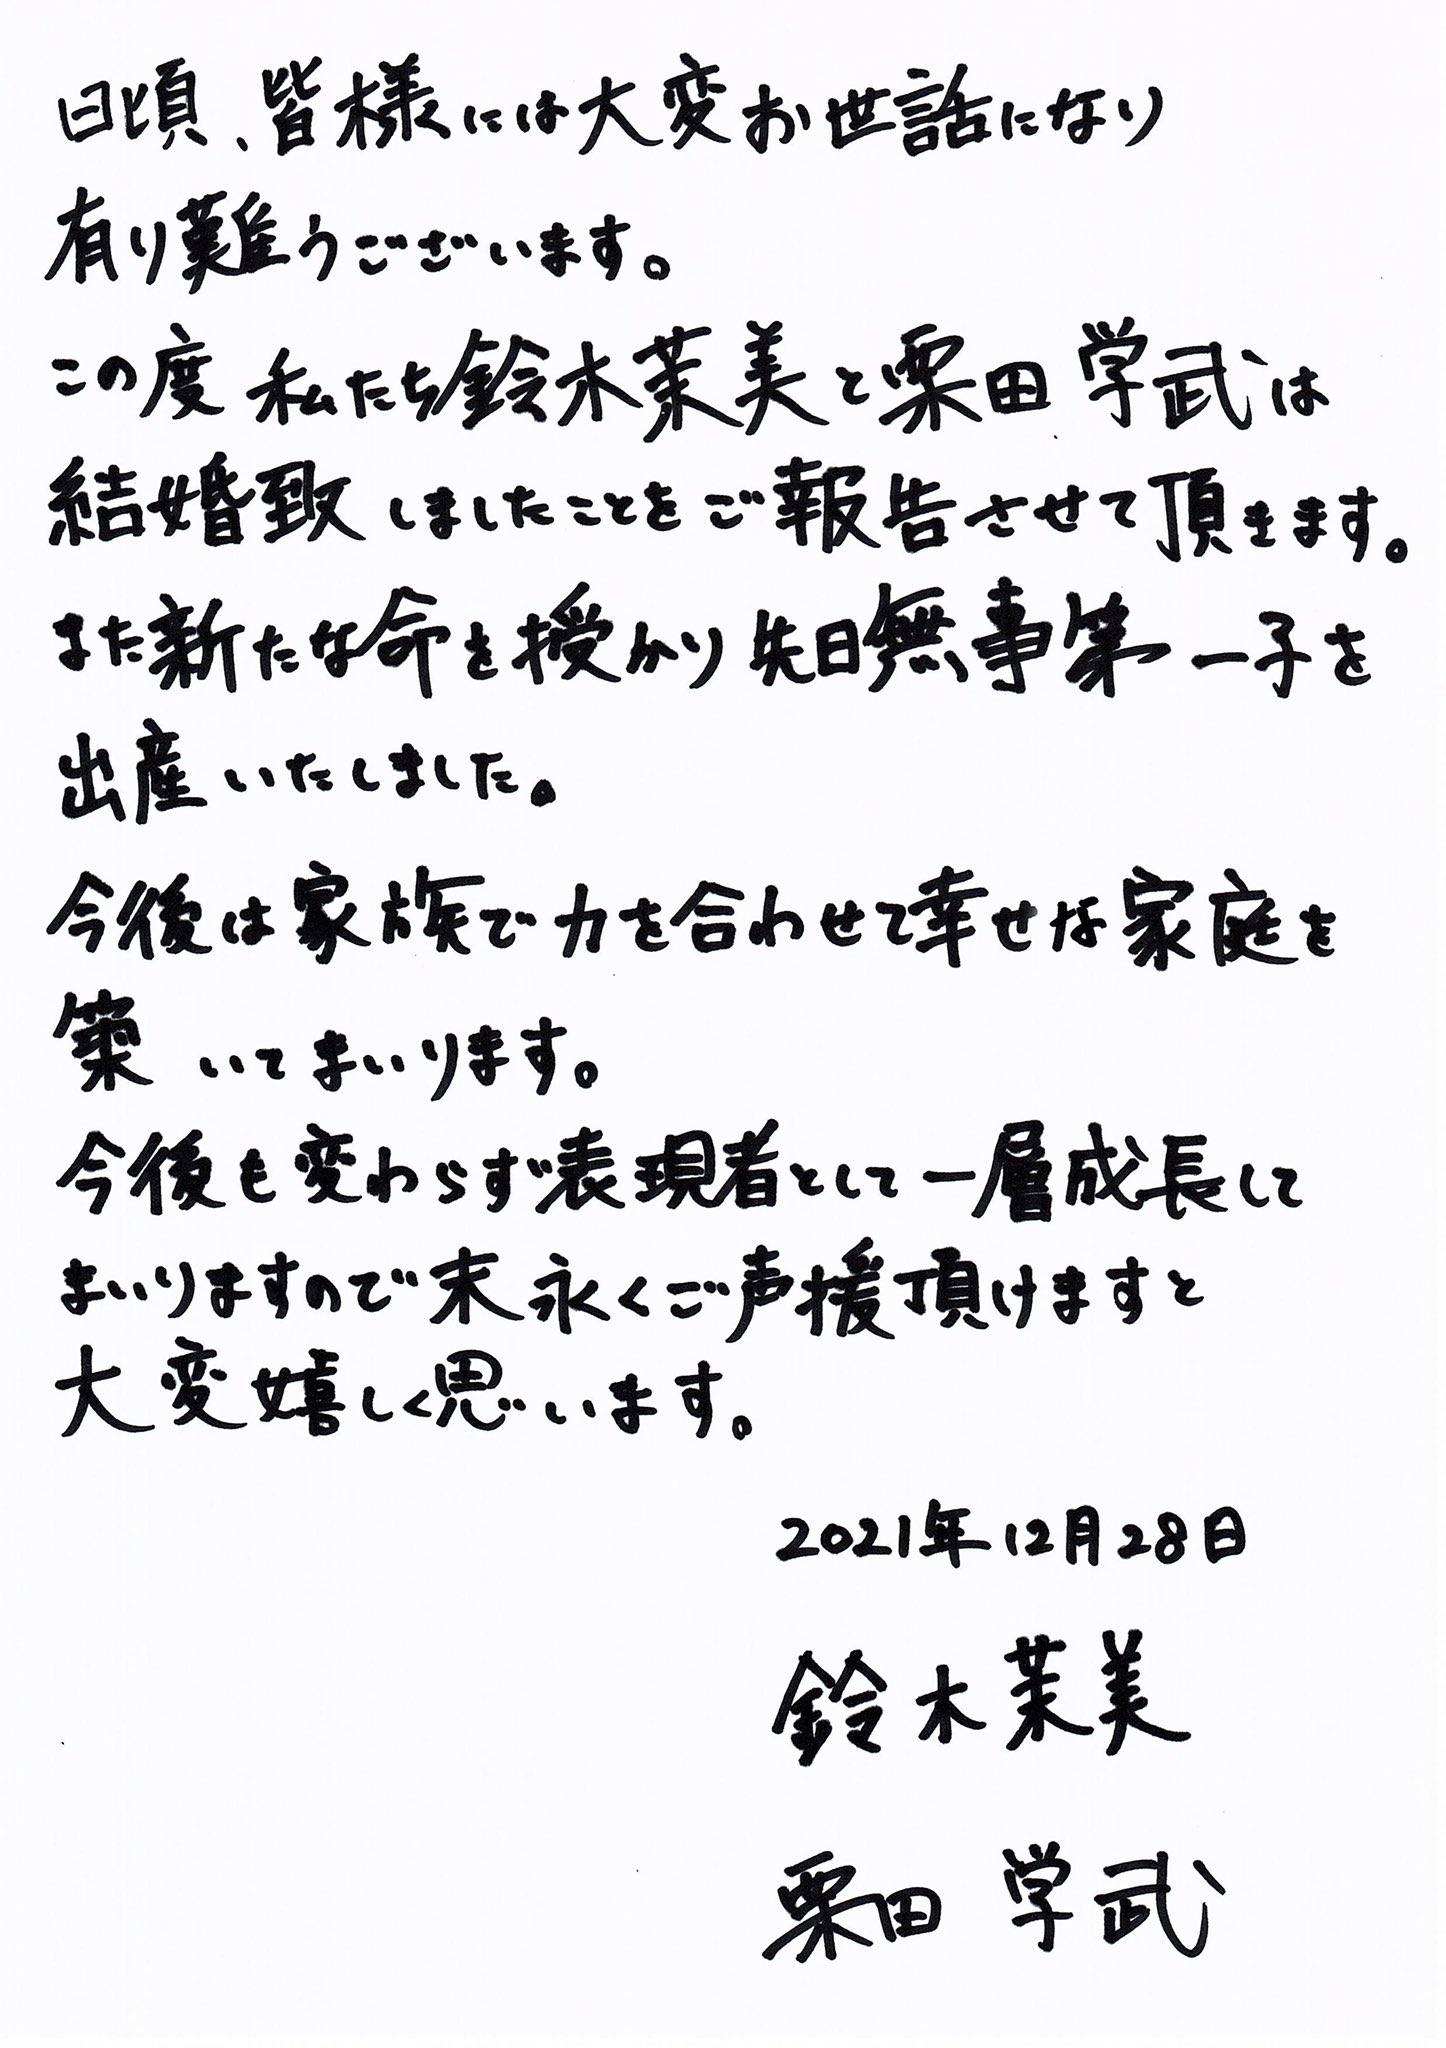 日頃、皆様には大変お世話になり
有り難うございます。
この度 私たち鈴木茉美と栗田 学武は
結婚致しましたことをご報告させて頂きます。
また新たな命を授かり先日無事第一子を
出産いたしました。
今後は家族で力を合わせて幸せな家庭を
築いてまいります。
今後も変わらず表現者として一層成長して
まいりますので末永くご声援頂けますと
大変嬉しく思います。
2021年12月28日
鈴木茉美
栗田 学武